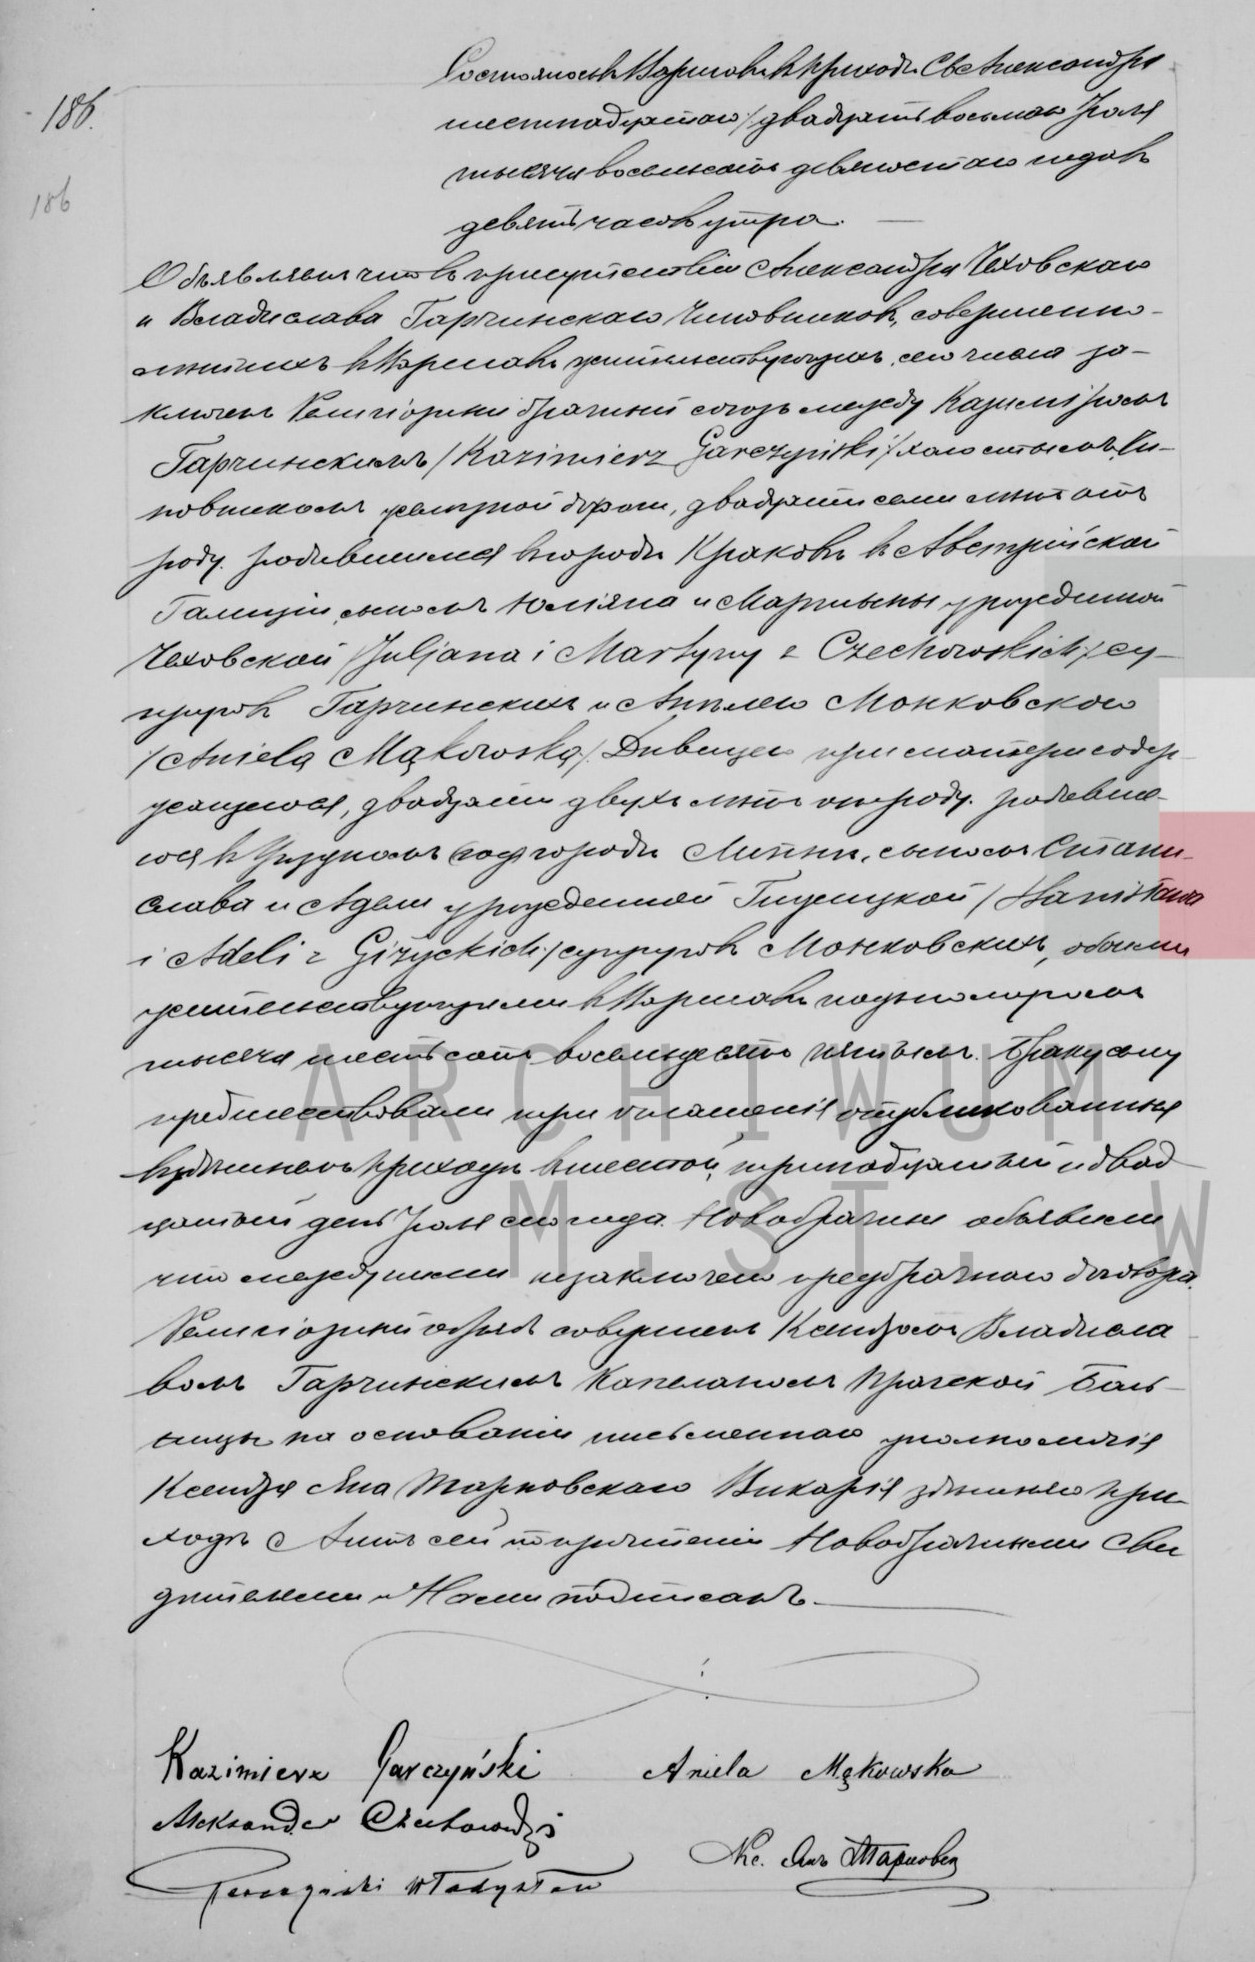 186.
186
Состоялось въ Варшавѣ въ приходѣ Св. Александра
шестнадцатаго/двадцать восьмаго Іюля
тысяча восемьсотъ девяностаго года въ
девять часовъ утра.
Объявляемъ что въ присутствіи Александра Чеховскаго
и Владислава Гарчинскаго Чиновниковъ, совершенно-
лѣтнихъ въ Варшавѣ жительствующихъ, сего числа за-
ключенъ Религіозный брачный союзъ между Казиміромъ
Гарчинскимъ /Kazimierz Garczyński/ холостымъ, Чи-
новникомъ желѣзной дороги, двадцати семи лѣтъ отъ
роду, родившимся въ городѣ Краковѣ въ Австрійской
Галиціи, сыномъ Юліяна и Мартыны урожденной
Чеховской /Juljana i Martyny z Czechowskich/ су-
пруговъ Гарчинскихъ и Анѣлею Монковскою
/Anielą Mąkowską/. Дѣвицею при матери содер-
жащеюся, двадцати двухъ лѣтъ отъ роду, родивше-
юся въ городѣ Липнѣ, Стани-
слава и Адели урожденной Гижицкой /Stanisława
i Adeli z Giżyckich/ супруговъ Монковскихъ, обоими
жительствующими въ Варшавѣ подъ номеромъ
тысяча шестьсотъ восемьдесятъ пятымъ. Браку сему
предшествовали три оглашенія опубликованныя
въ здѣшнемъ приходѣ въ шестой, тринадцатый и двад-
цатый день Іюля сего года. Новобрачные объявили
что между ними незаключено предбрачнаго договора.
Религіозный обрядъ совершенъ Ксендзомъ Владисла
вомъ Гарчинскимъ Капеланомъ Пражской Боль-
ницы на основаніи письменнаго уполномочія
Ксендза Яна Тарновскаго Викарія здѣшняго при-
хода. Актъ сей по прочтеніи Новобрачными Сви
дѣтелями и Нами подписанъ.
Kazimierz Garczyński Aniela Mąkowska
Aleksander Czechowski
Кс. Янъ Тарновск
Garczyński Władysław
ARCHIWUM
M. ST. W